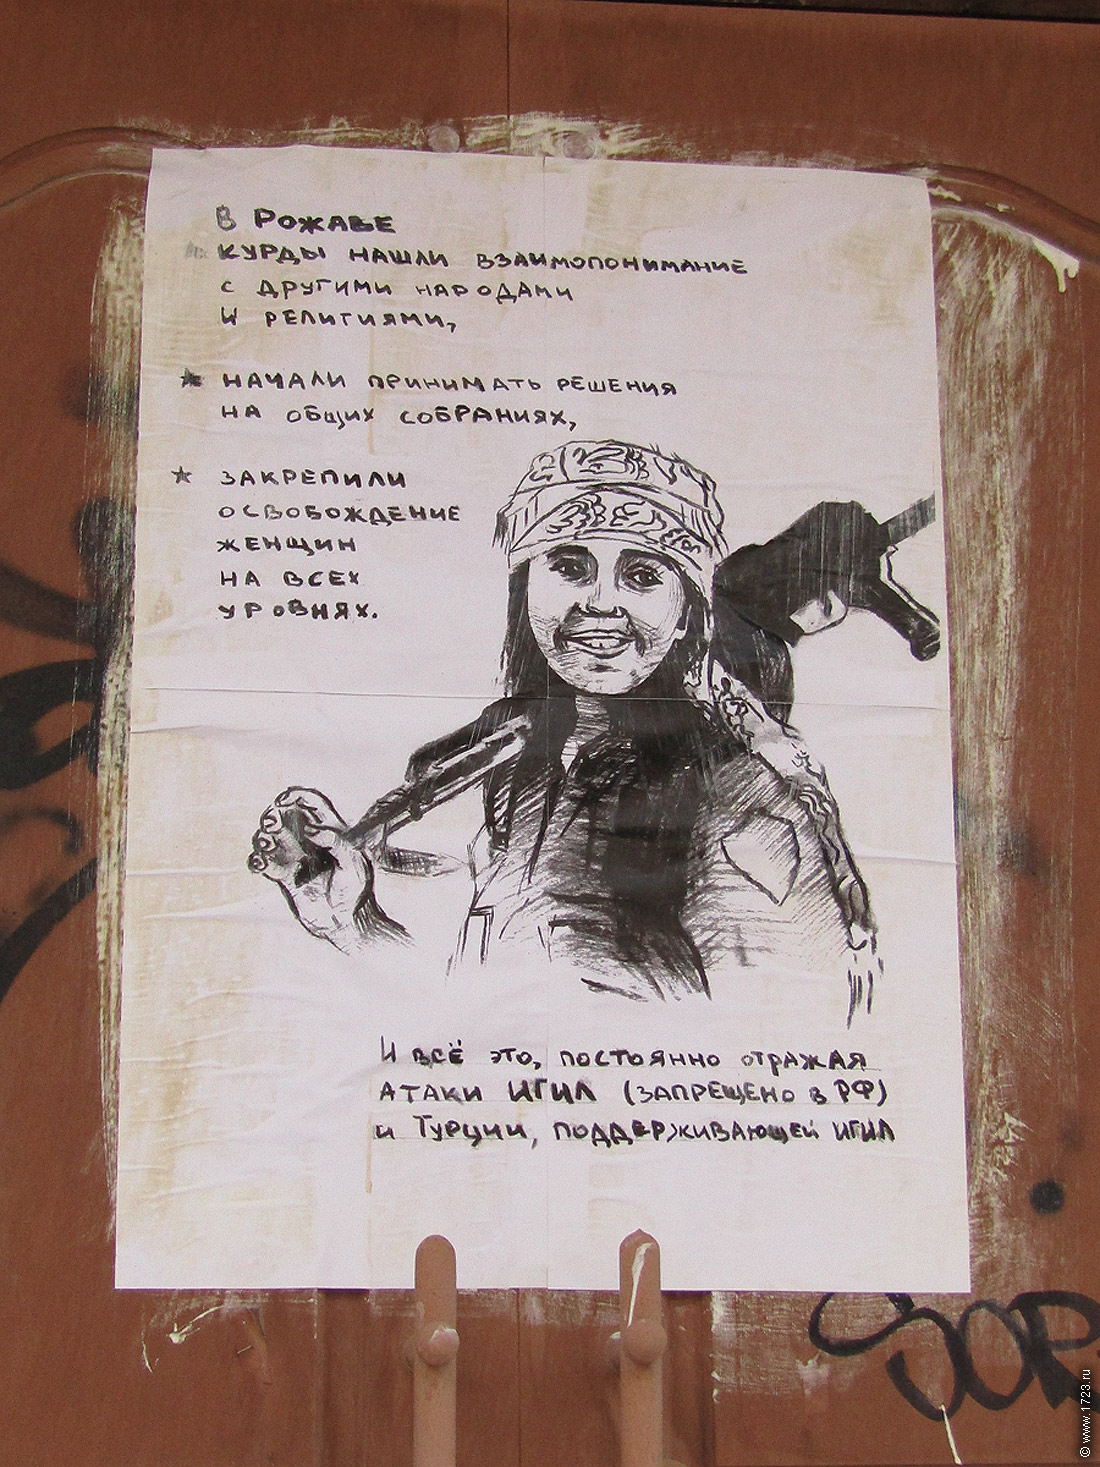 В РОЖАВЕ
★ КУРДЫ НАШЛИ ВЗАИМОПОНИМАНИЕ
С ДРУГИМИ НАРОДАМИ
И РЕЛИГИЯМИ,
★ НАЧАЛИ ПРИНИМАТЬ РЕШЕНИЯ
НА ОБЩИХ СОБРАНИЯХ,
★ ЗАКРЕПИЛИ
ОСВОБОЖДЕНИЕ
ЖЕНЩИН
НА ВСЕХ
УРОВНЯХ.
И ВСЁ ЭТО, ПОСТОЯННО ОТРАЖАЯ
АТАКИ ИГИЛ (ЗАПРЕЩЕНО В РФ)
И ТУРЦИИ, ПОДДЕРЖИВАЮЩЕЙ ИГИЛ
© www.1723.ru